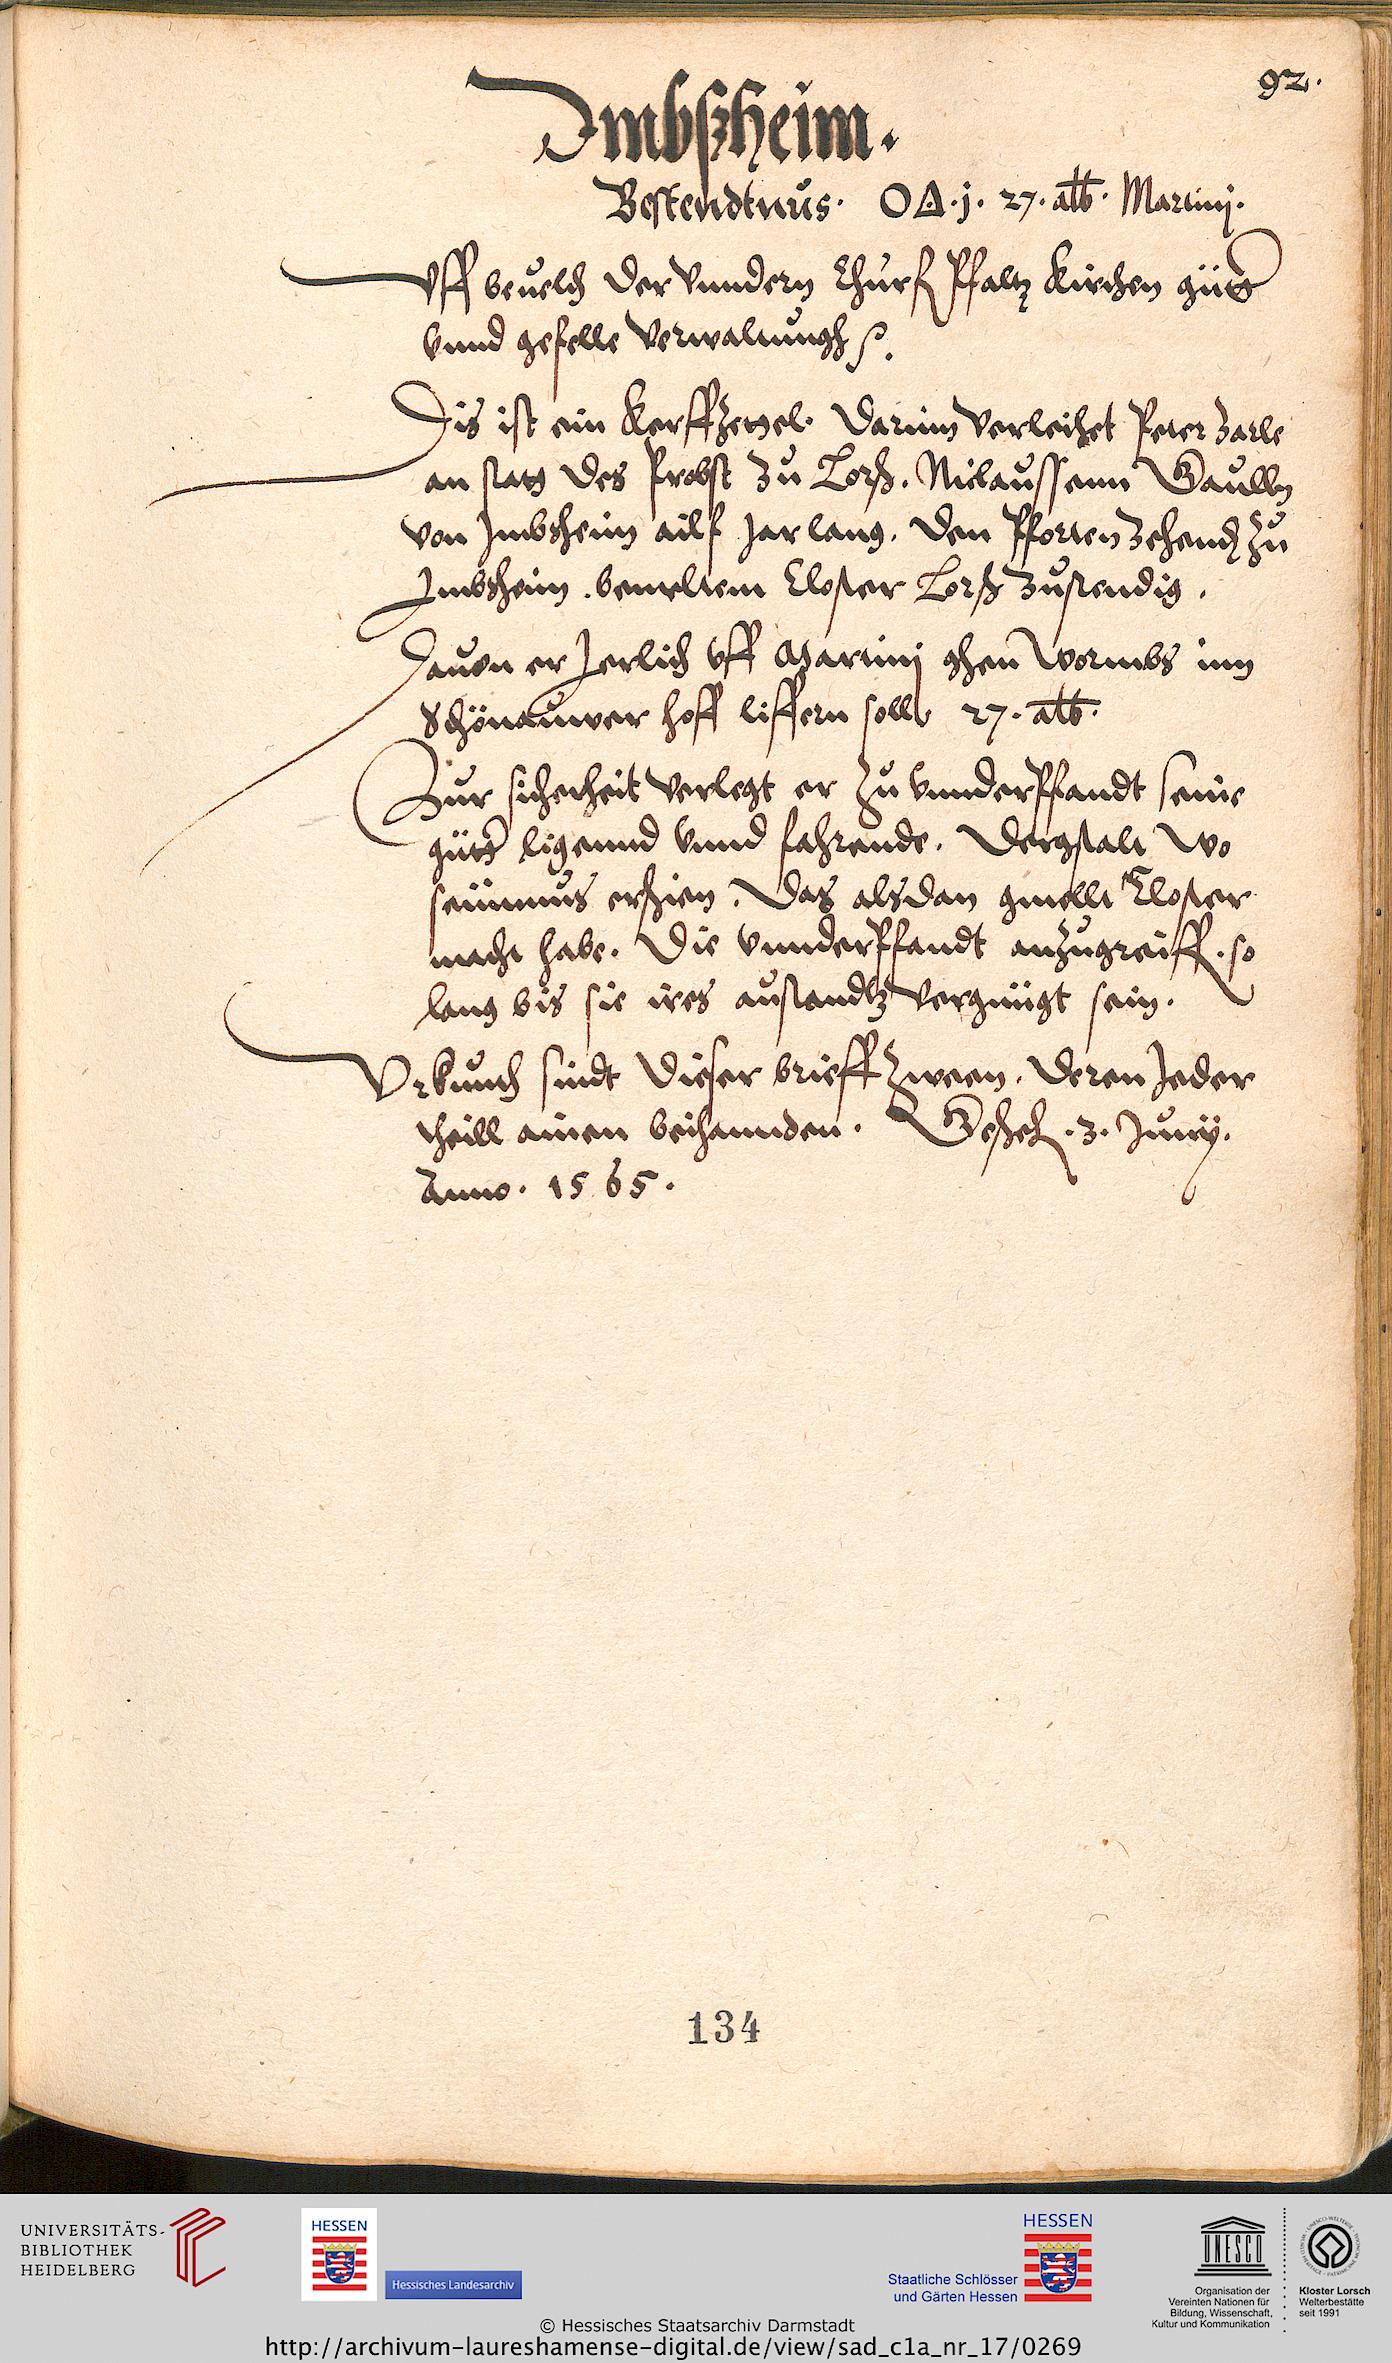 92.
Imbßheim.
Bestendtnus. O A. j. 27. alb. Martinj.
Vff beuelch der vnndern Churf Pfaltz Kirchen güter
vnnd gefelle Verwaltungh
Dis ist ein Kerffzettel. Darinn Verleihet Peter
an statt des Probst zu Lorß. Niclaussenn
von Imbsheim ailf Jar lang. den Pforten Zehend zu
Imbsheim. bemeltem Closter Lorß Zustendig.
dauon er Jerlich vff Martinj ghen Wormbs inn
Schönauwer hoff liffern soll 27. alb.
Zur sicherheit Verlegt er zu vnnderPfandt seine
güter ligennd vnnd fahrende. Dergstalt Wo
seumnus erschien. Das alsdan gmellt Closter
macht habe. Die vnnderPfandt anzugreiffen. so
lang bis sie ires austandtz Vergnügt sein.
Vrkunth sindt Dieser brieff Zween. Deren Jeder
theill ainen beihannden. Geschehen. 3. Junij.
Anno. 1565.
134
UNIVERSITÄTS-
BIBLIOTHEK
HEIDELBERG
HESSEN
Hessisches Landesarchiv
HESSEN
Staatliche Schlösser
und Gärten Hessen
UNESCO
Organisation der
Vereinten Nationen für
Bildung, Wissenschaft,
Kultur und Kommunikation
Kloster Lorsch
Welterbestätte
seit 1991
© Hessisches Staatsarchiv Darmstadt
http://archivum-laureshamense-digital.de/view/sad_c1a_nr_17/0269